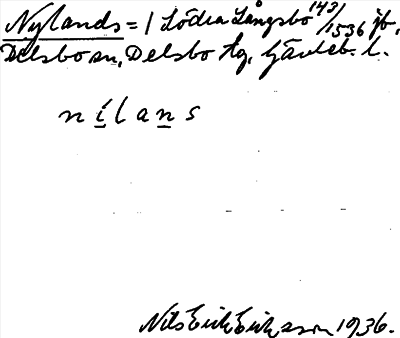 Nylands = / Södra Långsbo 143/1536 jb.
Delsbo sn, Delsbo tg, Gävleb. l.
nílans
Nils Erik Eriksson 1936.